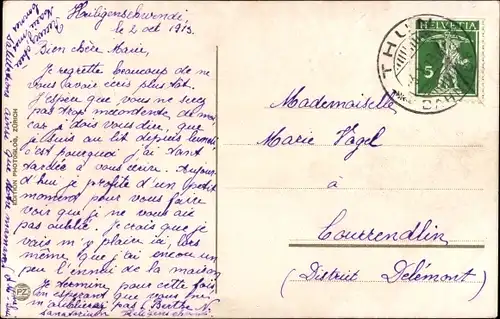 Heiligenschwendi
le 2 oct 1913.
Bien chère Marie,
Je regrette beaucoup de ne
vous avoir écris plus tôt.
J'espère que vous ne serez
pas trop mécontende, de moi
car je dois vous dire, que
je suis au lit depuis lundi
c'est pourquoi j'ai tant
tardée à vous écrire. Aujour
d'hui je profite d'un petit
moment pour vous faire
voir que je ne vous aie
pas oublié. Je crois que je
vais m'y plaire ici, lors
même que j'ai encore un
peu l'ennui de la maison
Je termine pour cette fois
en espérant que vous ne
m'oublierez pas. Berthe N.
sanatorium Heiligenschwendi
EDITION PHOTOGLOB, ZÜRICH
PZ
HELVETIA
5
THUN
BAHN
Mademoiselle
Marie Vogel
à
Courrendlin
(District Delémont)